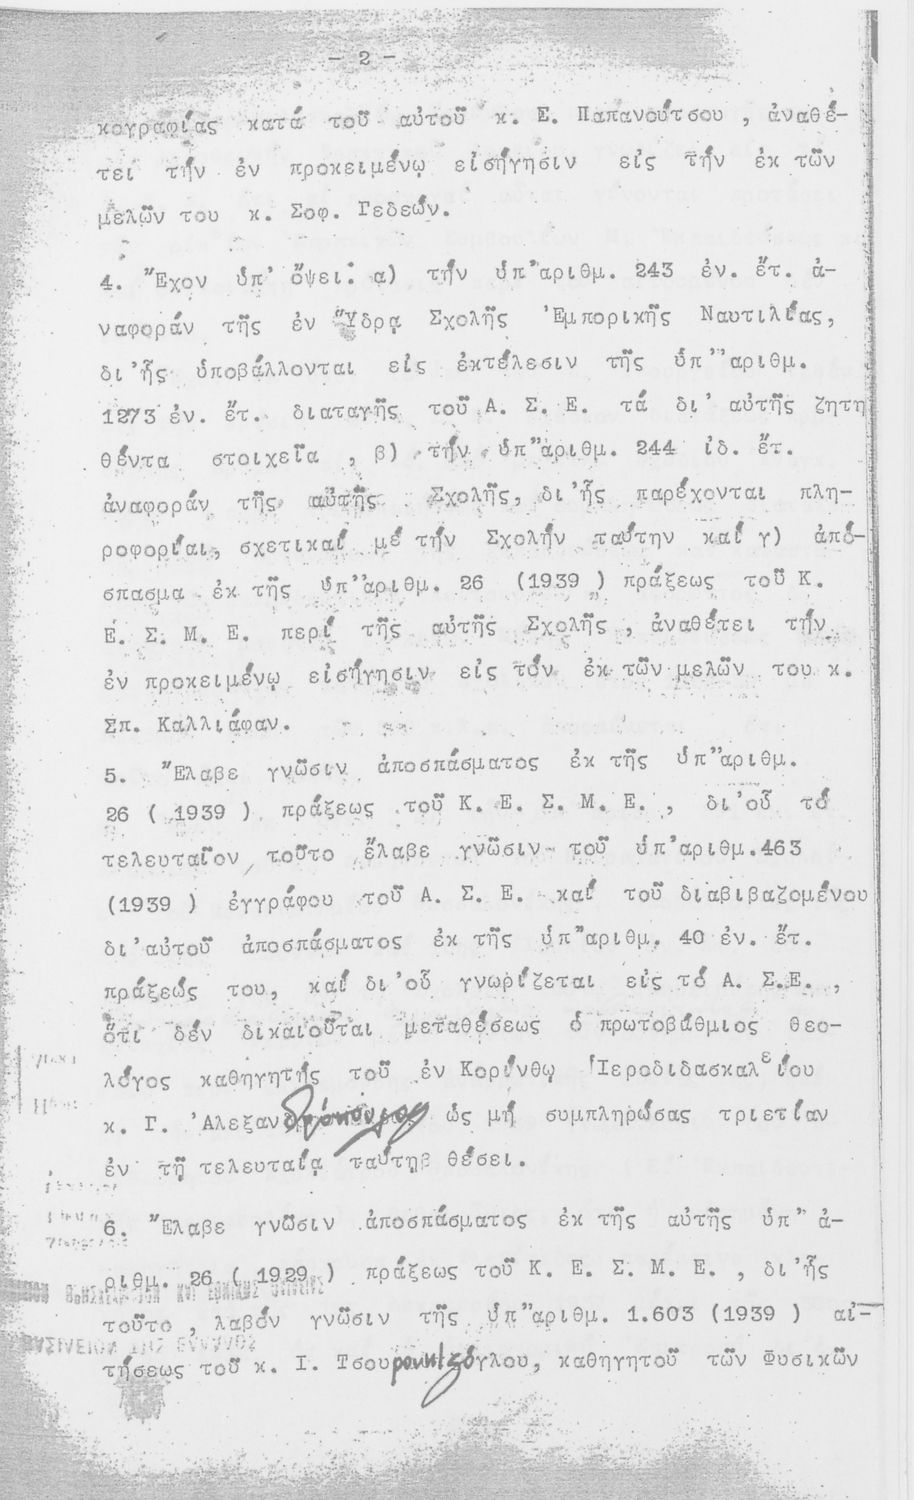 - 2 -
κογραφίας κατά τοῦ αὐτοῦ κ. Σ. Παπανούτσου , ἀναθέ-
τει τήν ἐν προκειμένῳ εἰσήγησιν εἰς τήν ἐκ τῶν
μελῶν του κ. Σοφ. Γεδεών.
4. Ἔχον ὑπ' ὄψει: α) τήν ὑπ'ἀριθμ. 243 ἐν. ἔτ. ἀ-
ναφοράν τῆς ἐν Ὕδρᾳ Σχολῆς Ἐμπορικῆς Ναυτιλίας,
δι'ἧς ὑποβάλλονται εἰς ἐκτέλεσιν τῆς ὑπ'ἀριθμ.
1273 ἐν. ἔτ. διαταγῆς τοῦ Α. Σ. Ε. τά δι' αὐτῆς ζητη
θέντα στοιχεῖα , β) τήν ὑπ'ἀριθμ. 244 ἰδ. ἔτ.
ἀναφοράν τῆς αὐτῆς Σχολῆς, δι'ἧς παρέχονται πλη-
ροφορίαι, σχετικαί μέ τήν Σχολήν ταύτην καί γ) ἀπό-
σπασμα ἐκ τῆς ὑπ'ἀριθμ. 26 (1939 ) πράξεως τοῦ Κ.
Ε. Σ. Μ. Ε. περί τῆς αὐτῆς Σχολῆς , ἀναθέτει τήν
ἐν προκειμένῳ εἰσήγησιν εἰς τόν ἐκ τῶν μελῶν του κ.
Σπ. Καλλιάφαν.
5. Ἔλαβε γνῶσιν ἀποσπάσματος ἐκ τῆς ὑπ'ἀριθμ.
26 ( 1939 ) πράξεως τοῦ Κ. Ε. Σ. Μ. Ε. , δι'οὗ τό
τελευταῖον τοῦτο ἔλαβε γνῶσιν τοῦ ὑπ'ἀριθμ.463
(1939 ) ἐγγράφου τοῦ Α. Σ. Ε. καί τοῦ διαβιβαζομένου
δι'αὐτοῦ ἀποσπάσματος ἐκ τῆς ὑπ'ἀριθμ. 40 ἐν. ἔτ.
πράξεώς του, καί δι'οὗ γνωρίζεται εἰς τό Α. Σ.Ε. ,
ὅτι δέν δικαιοῦται μεταθέσεως ὁ πρωτοβάθμιος θεο-
λόγος καθηγητής τοῦ ἐν Κορίνθῳ Ἱεροδιδασκαλείου
κ. Γ. Ἀλεξανδρόπουλος ὡς μή συμπληρώσας τριετίαν
ἐν τῇ τελευταίᾳ ταύτηβ θέσει.
6. Ἔλαβε γνῶσιν ἀποσπάσματος ἐκ τῆς αὐτῆς ὑπ' ἀ-
ριθμ. 26 ( 1929 ) πράξεως τοῦ Κ. Ε. Σ. Μ. Ε. , δι'ἧς
τοῦτο , λαβόν γνῶσιν τῆς ὑπ'ἀριθμ. 1.603 (1939 ) αἰ-
τήσεως τοῦ κ. Ι. Τσουρουκτζόγλου, καθηγητοῦ τῶν Φυσικῶν